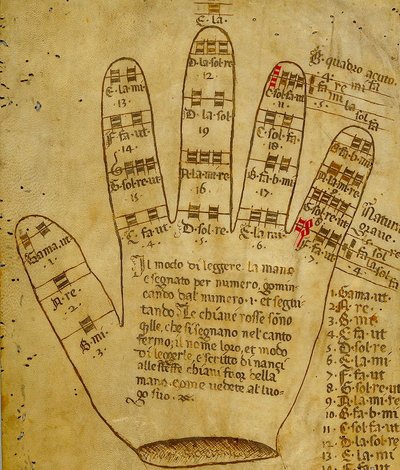 E. la.
D. la. sol. re
12
E. la. mi
13.
D. la. sol
19
C. sol. fa. ut
11.
B. quadro acuto.
4. mi. fa
fa mi la
5. sol. fa
F. fa. ut
14
C. sol. fa.
18.
B. fa. b. mi
G. sol. re. ut
15
A. la. mi. re
16.
B. fa. b. mi
17.
A. la. mi. re
G. sol. re. ut
Natura
grave.
C. fa. ut
.4.
D. sol. re
.5.
E. la. mi
.6.
F. fa. ut
7.
Gama. ut
.1.
A. re.
.2.
B. mi.
3.
Il modo di leggere la mano
e segnato per numero, comin
cando dal numero .1. et segui
tando. Le chiave rosse sono
qlle, che si segnano nel canto
fermo, il nome loro, et modo
di leggerle, e scritto di nanci
alle stesse chiavi fuor della
mano come vedete al luo
go suo.
1. Gama. ut
2. A. re.
3. B. mi
4. C. fa. ut
5. D. sol. re
6. E. la. mi
7. F. fa. ut
8. G. sol. re. ut
9. A. la. mi. re
10. B. fa. b. mi
11. C. sol. fa. ut
12. D. la. sol. re
13. E. la. mi
14. F. fa. ut